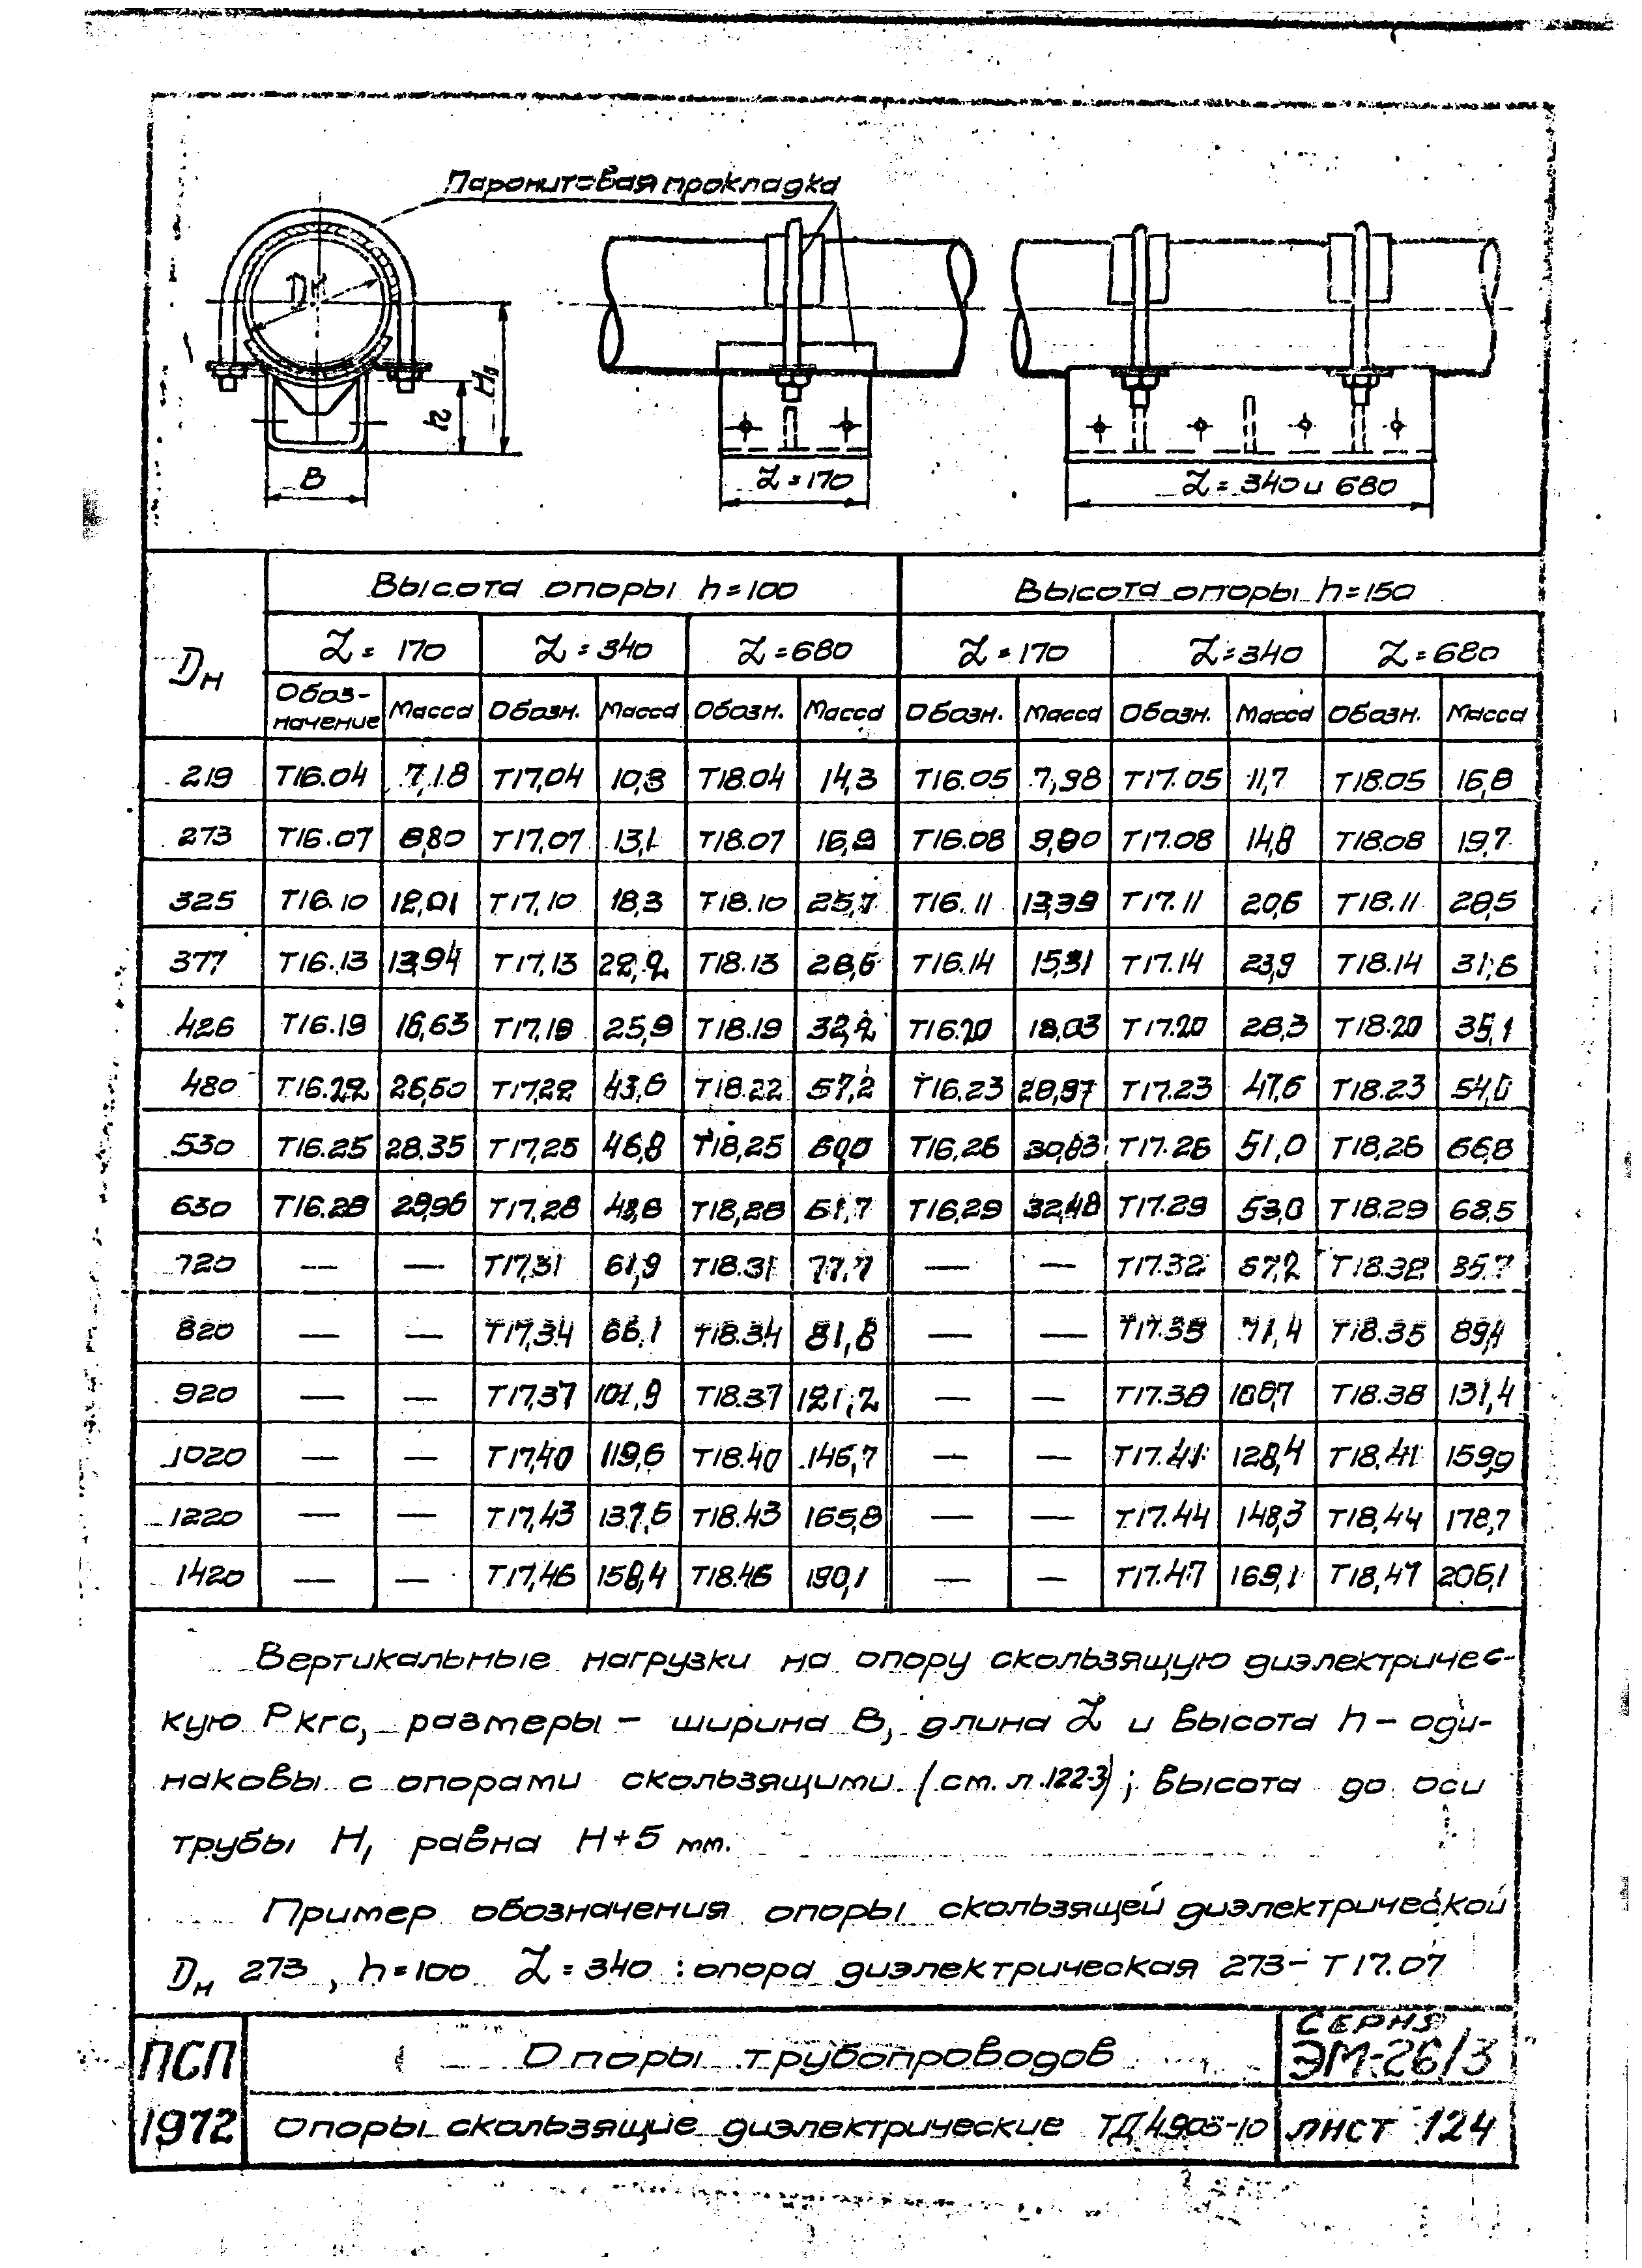 Паронитовая прокладка
Dн
h
H₁
B
L=170
L=340 и 680
Dн Высота опоры h=100 Высота опоры h=150
L=170 L=340 L=680 L=170 L=340 L=680
Обоз-
начение Масса Обозн. Масса Обозн. Масса Обозн. Масса Обозн. Масса Обозн. Масса
219 Т16.04 7,18 Т17,04 10,3 Т18.04 14,3 Т16.05 7,98 Т17.05 11,7 Т18.05 16,8
273 Т16.07 8,80 Т17,07 13,1 Т18.07 16,9 Т16.08 9,90 Т17.08 14,8 Т18.08 19,7
325 Т16.10 12,01 Т17,10 18,3 Т18.10 25,7 Т16.11 13,39 Т17.11 20,6 Т18.11 28,5
377 Т16.13 13,94 Т17,13 22,2 Т18.13 28,6 Т16.14 15,31 Т17.14 23,9 Т18.14 31,6
426 Т16.19 16,63 Т17,19 25,9 Т18.19 32,2 Т16.20 18,03 Т17.20 28,3 Т18.20 35,1
480 Т16.22 26,50 Т17,22 43,6 Т18.22 57,2 Т16.23 28,97 Т17.23 47,6 Т18.23 54,0
530 Т16.25 28.35 Т17,25 46,8 Т18,25 60,0 Т16,26 30,83 Т17.26 51,0 Т18,26 66,8
630 Т16.28 29,96 Т17,28 48,8 Т18,28 61,7 Т16,29 32,48 Т17.29 53,0 Т18.29 68,5
720 — — Т17,31 61,9 Т18.31 77,7 — — Т17.32 67,2 Т18.32 85,7
820 — — Т17,34 66,1 Т18.34 81,8 — — Т17.35 71,4 Т18.35 89,4
920 — — Т17,37 101,9 Т18.37 121,2 — — Т17.38 Т18.38 131,4
1020 — — Т17,40 119,6 Т18.40 146,7 — — Т17.41 128,4 Т18.41 159,9
1220 — — Т17,43 137,5 Т18.43 165,8 — — Т17.44 148,3 Т18,44 178,7
1420 — — Т17,46 158,4 Т18.46 190,1 — — Т17.47 169,1 Т18,47 206,1
Вертикальные нагрузки на опору скользящую диэлектричес-
кую Р кгс, размеры – ширина В, длина L и высота h – оди-
наковы с опорами скользящими (см. л.122-3); высота до оси
трубы H₁ равна H+5 мм.
Пример обозначения опоры скользящей диэлектрической
Dн 273, h=100 L=340 : опора диэлектрическая 273–Т17.07
ПСП Опоры трубопроводов СЕРИЯ
ЭМ-26/3
1972 Опоры скользящие диэлектрические ТД4903-10 ЛИСТ 124